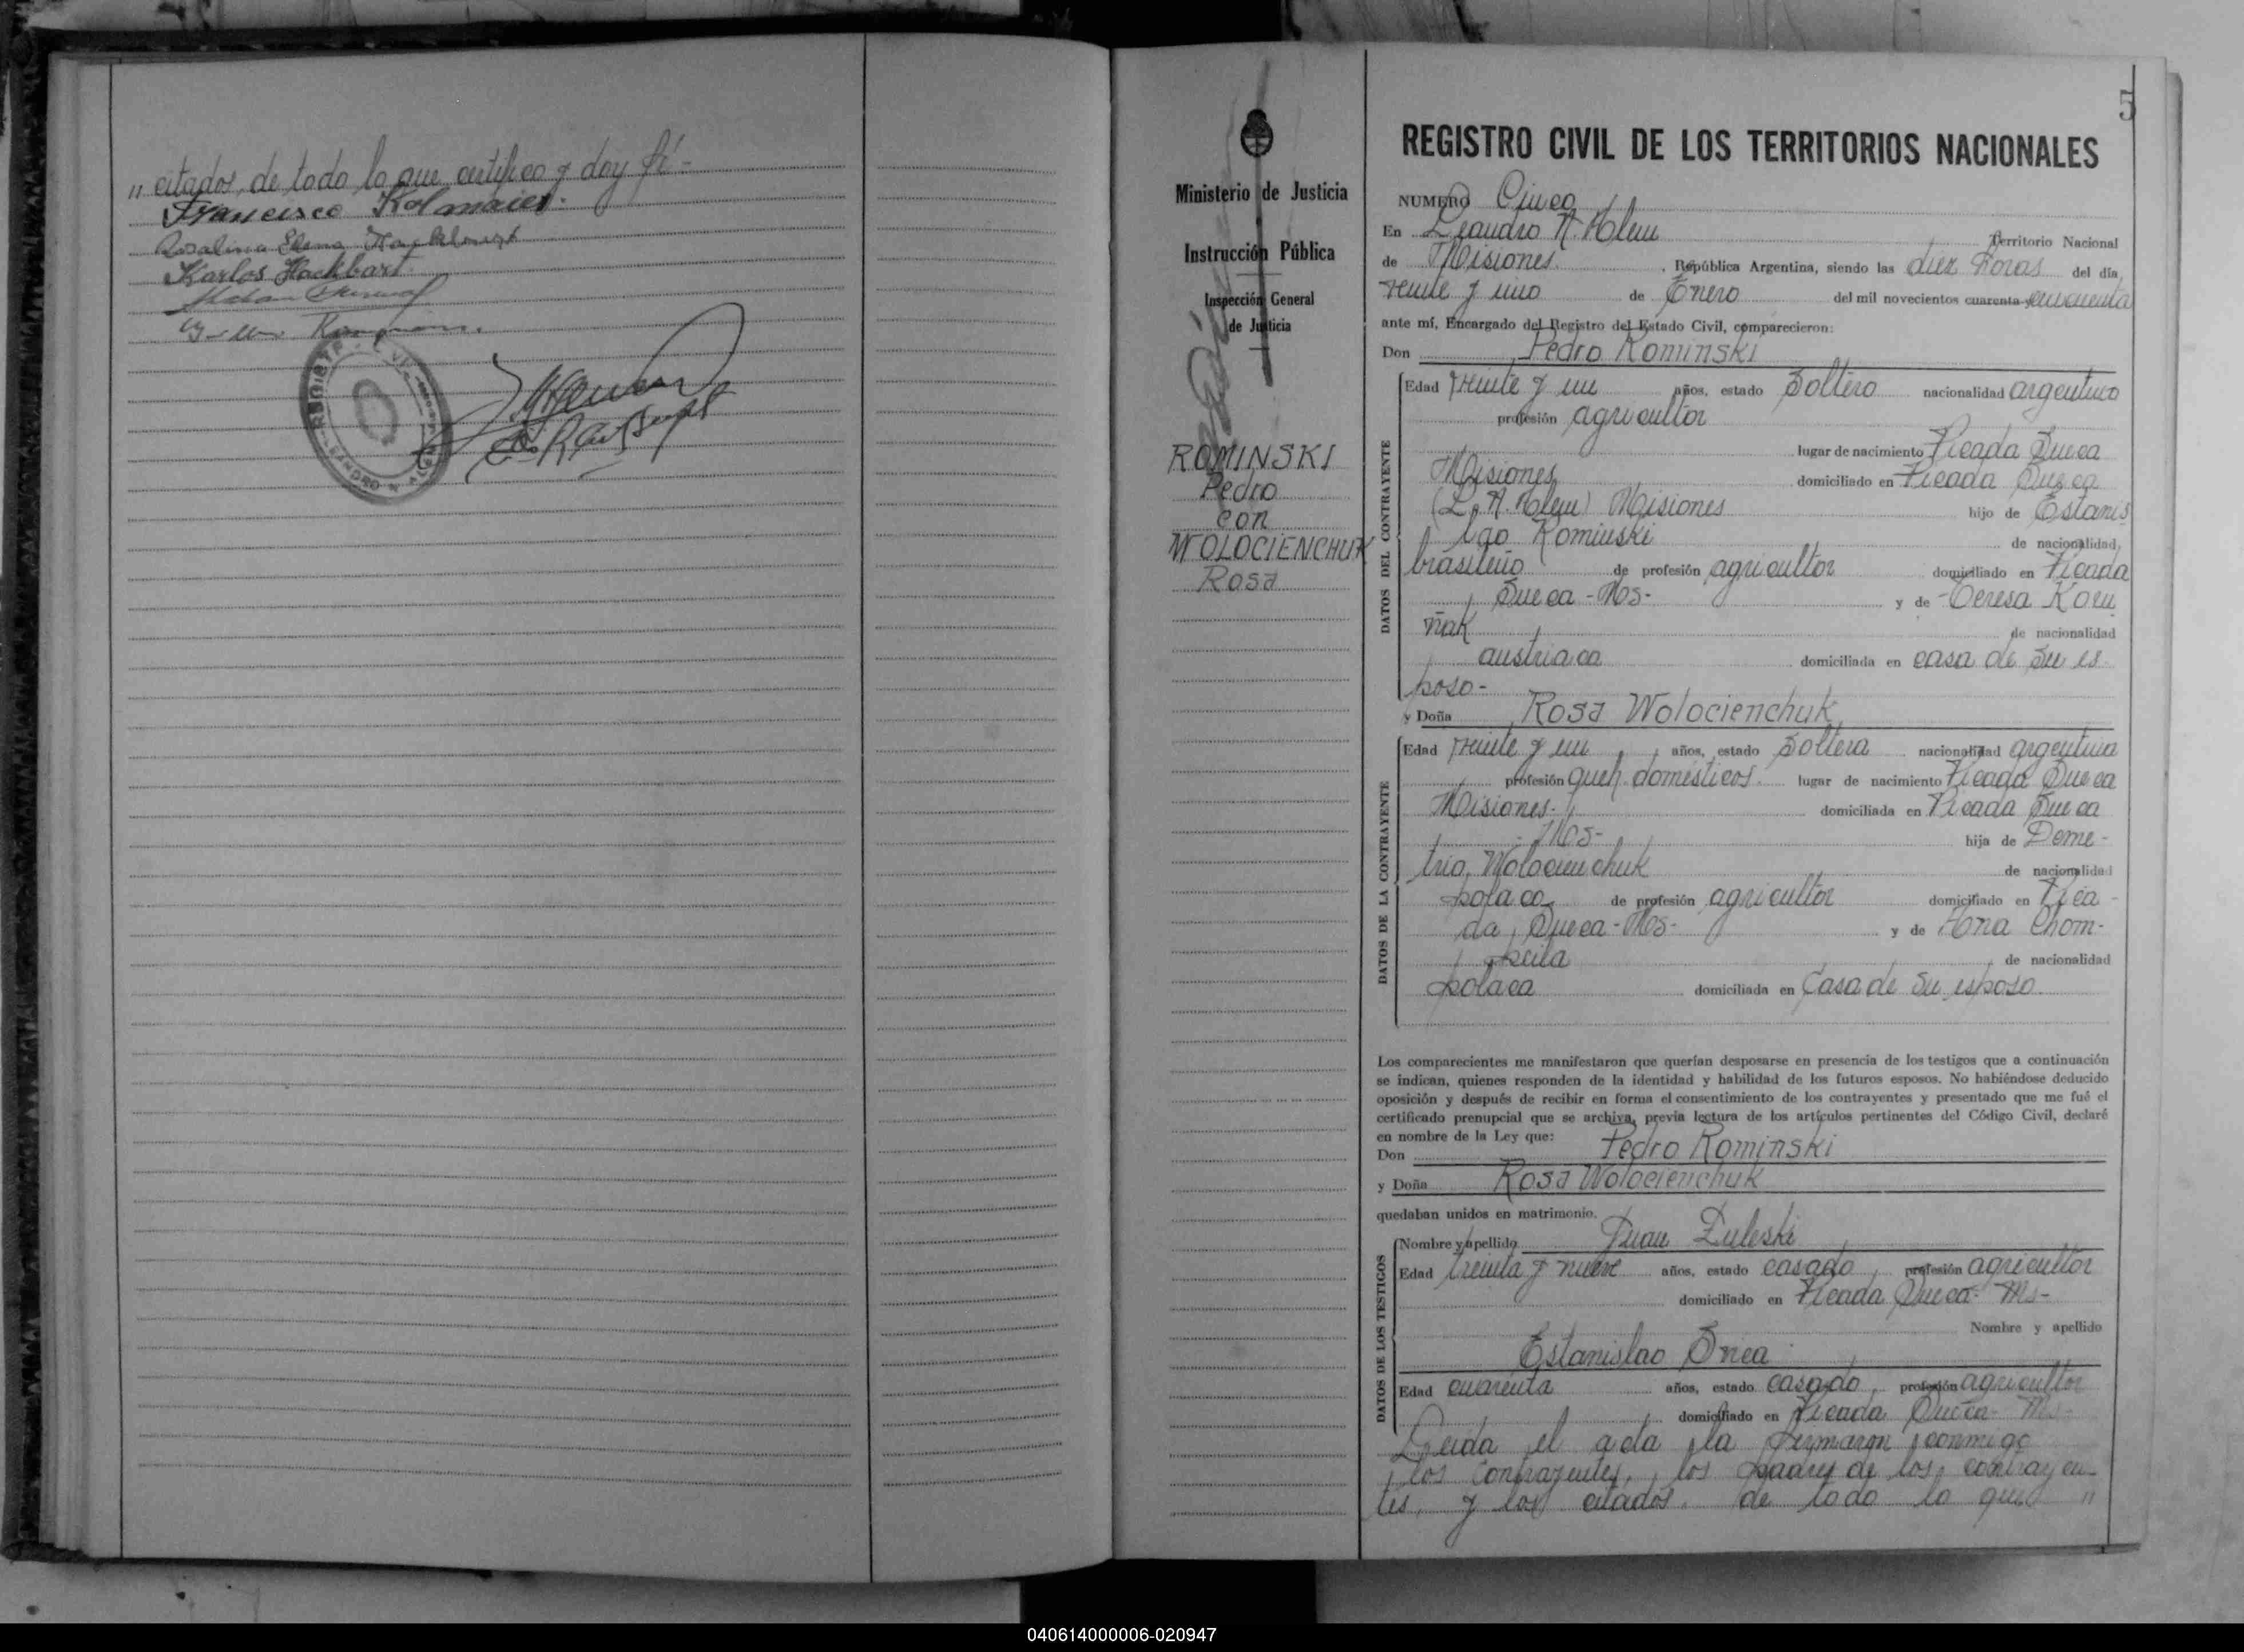 " citados, de todo lo que certifico y doy fé-
Francisco Kolmaier.
Rosalina Elena Hackbart
Karlos Hackbart
Ministerio de Justicia
Instrucción Pública
Inspección General
de Justicia
ROMINSKI
Pedro
con
WOLOCIENCHUK
Rosa
5
REGISTRO CIVIL DE LOS TERRITORIOS NACIONALES
NUMERO Cinco
En Leandro N. Alem Territorio Nacional
de Misiones, República Argentina, siendo las diez horas del día
veinte y uno de Enero del mil novecientos cuarenta y cincuenta
ante mí, Encargado del Registro del Estado Civil, comparecieron:
Don Pedro Rominski
DATOS DEL CONTRAYENTE
Edad veinte y un años, estado soltero nacionalidad argentino
profesión agricultor
lugar de nacimiento Picada Sueca
Misiones domiciliado en Picada Sueca
(L. N. Alem) Misiones hijo de Estanis
lao Rominski de nacionalidad,
brasileño de profesión agricultor domiciliado en Picada
Sueca - Mos- y de Teresa Kou
ñak de nacionalidad
austriaca domiciliada en casa de su es-
poso-
y Doña Rosa Wolocienchuk
DATOS DE LA CONTRAYENTE
Edad veinte y un años, estado soltera nacionalidad argentina
profesión queh. domésticos lugar de nacimiento Picada Sueca
Misiones- domiciliada en Picada Sueca
- Mos- hija de Deme-
trio Wolocienchuk de nacionalidad
polaco de profesión agricultor domiciliado en Pica-
da Sueca - Mos- y de Ana Chom-
de nacionalidad
polaca domiciliada en Casa de su esposo
Los comparecientes me manifestaron que querían desposarse en presencia de los testigos que a continuación
se indican, quienes responden de la identidad y habilidad de los futuros esposos. No habiéndose deducido
oposición y después de recibir en forma el consentimiento de los contrayentes y presentado que me fué el
certificado prenupcial que se archiva, previa lectura de los artículos pertinentes del Código Civil, declaré
en nombre de la Ley que:
Don Pedro Rominski
y Doña Rosa Wolocienchuk
quedaban unidos en matrimonio.
DATOS DE LOS TESTIGOS
Nombre y apellido Juan Zuleski
Edad treinta y nueve años, estado casado, profesión agricultor
domiciliado en Picada Sueca- Ms-
Nombre y apellido
Estanislao
Edad cuarenta años, estado casado, profesión agricultor
domiciliado en Picada Sueca- Ms-
Leida el acta la firmaron conmigo
los contrayentes, los padres de los contrayen-
tes, y los citados. de todo lo que "
040614000006-020947